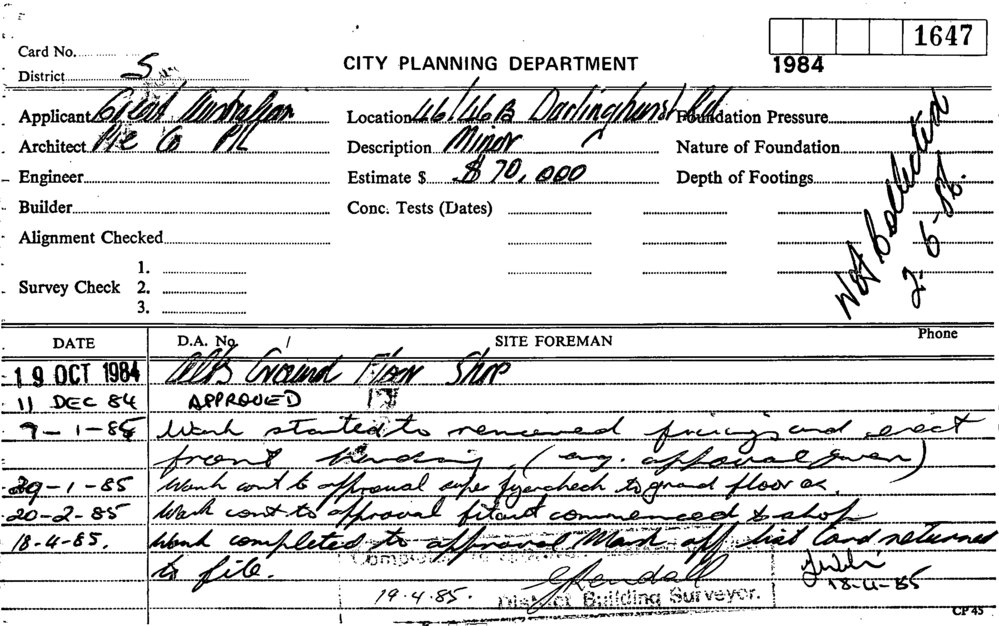 Card No.
1647
District S
CITY PLANNING DEPARTMENT
1984
Applicant Great Australian
Location 46/46B Darlinghurst Rd
Foundation Pressure
Architect Pie Co P/L
Description Minor
Nature of Foundation
Engineer
Estimate $ $ 70,000
Depth of Footings
Builder
Conc. Tests (Dates)
Alignment Checked
Not Collected
2-6-86.
1.
Survey Check 2.
3.
DATE
D.A. No. /
SITE FOREMAN
Phone
19 OCT 1984 Ground Floor Shop
11 DEC 84 APPROVED
9-1-85 Work started to removed fixings and erect
front hoarding, (eng. approval given)
29-1-85 Work cont to approval gyprock to ground floor
20-2-85 Work cont to approval fitout commenced to shop
18-4-85. Work completed to approval Mark off list Card returned
to file.
19.4.85. District Building Surveyor.
18-4-85
CP 45